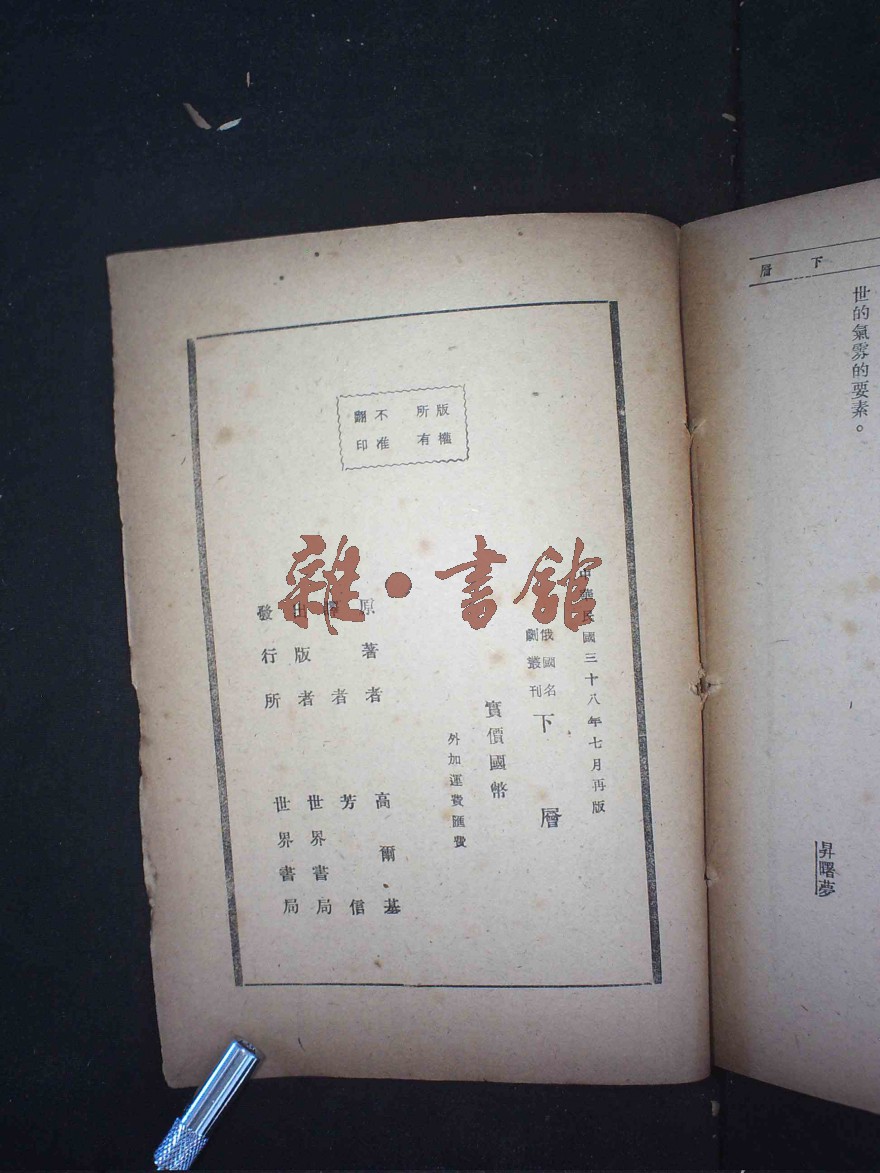 下層
世的氣雰的要素。
昇曙夢
版權所有
不准翻印
中華民國三十八年七月再版
俄國名劇叢刊
下層
實價國幣
外加運費匯費
原著者 高爾基
譯者 芳信
出版者 世界書局
發行所 世界書局
雜·書館